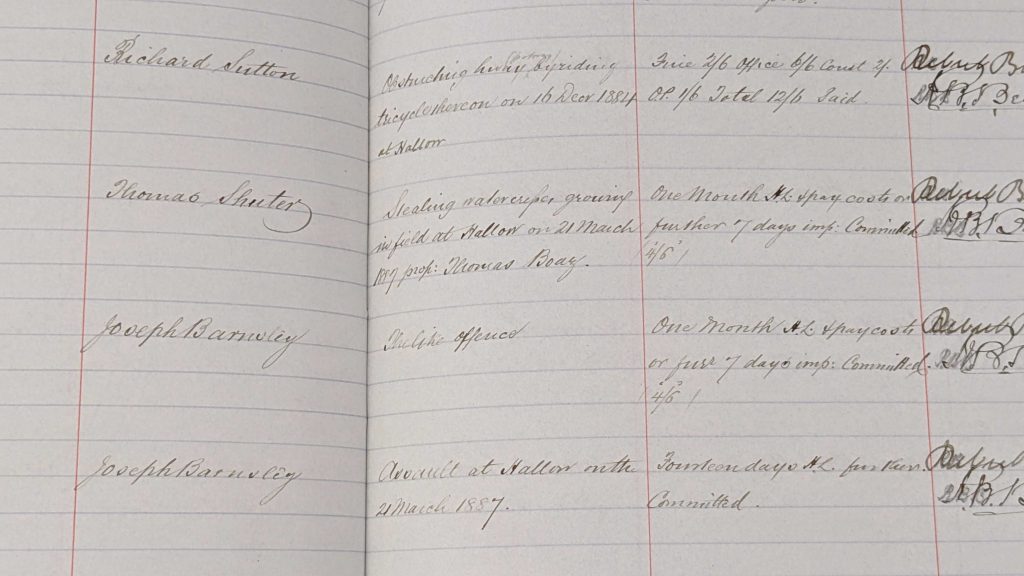 Richard Sutton
Obstructing hway by riding
Fine 2/6 Office 6/6 Const 2/
tricycle thereon on 16 Decr 1884
O.P. 1/6 Total 12/6 Paid
at Hallow
Thomas Shuter
Stealing watercress growing
One Month HL & pay costs or
in field at Hallow on 21 March
further 7 days imp: Committed
1887 prop: Thomas Boaz.
4/6
Joseph Barnsley
The like offence
One Month HL & pay costs
or fur 7 days imp: Committed.
4/6
Joseph Barnsley
Assault at Hallow on the
Fourteen days HL further.
21 March 1887.
Committed.